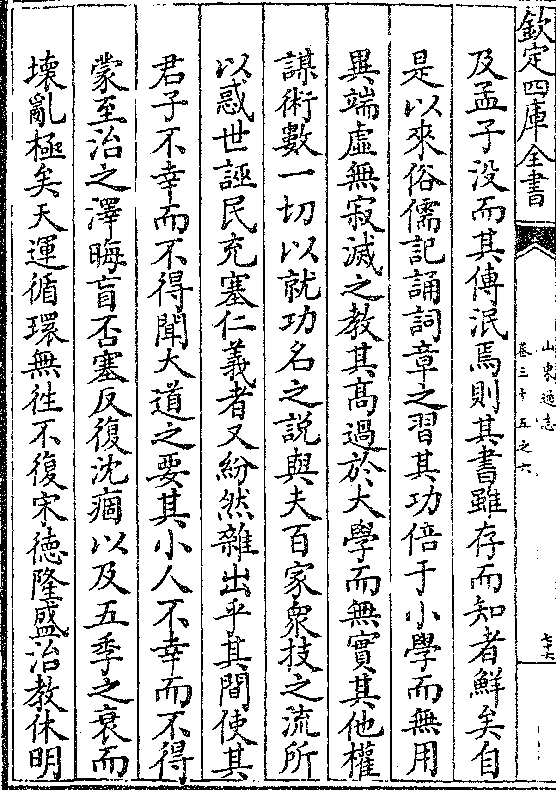 欽定四庫全書
山東通志
卷三十五之六
七十六
及孟子没而其傳泯焉則其書雖存而知者鮮矣自
是以來俗儒記誦詞章之習其功倍于小學而無用
異端虚無寂滅之教其髙過於大學而無實其他權
謀術數一切以就功名之説與夫百家衆技之流所
以惑世誣民充塞仁義者又紛然雜出乎其間使其
君子不幸而不得聞大道之要其小人不幸而不得
蒙至治之澤晦盲否塞反復沈痼以及五季之衰而
壊亂極矣天運循環無徃不復宋徳隆盛治教休明